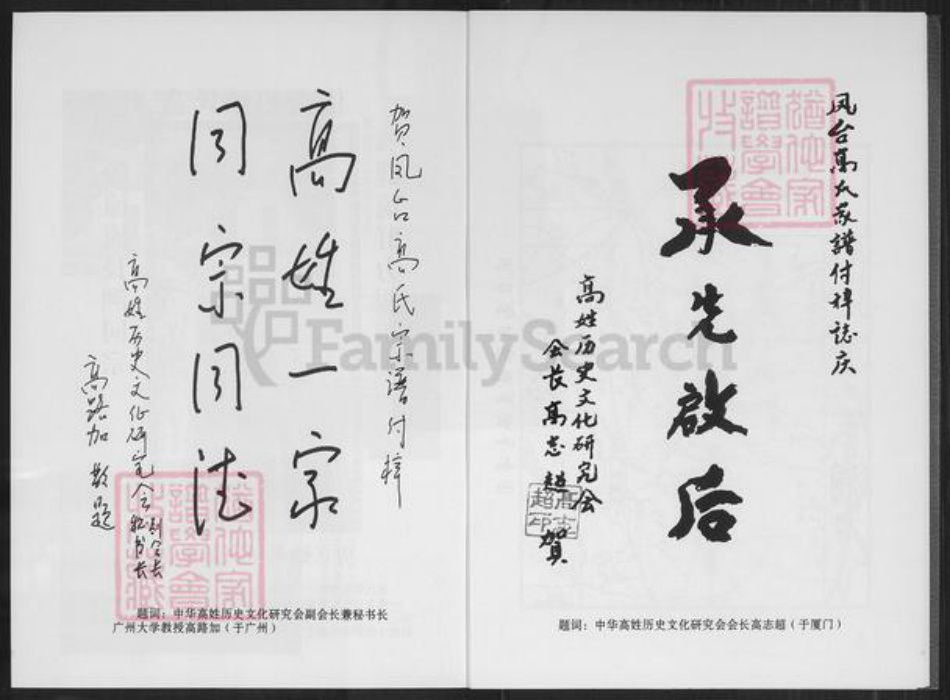 凤台高氏家谱付梓誌庆
承先啟后
高姓历史文化研究会
会长高志超贺
高志超印
题词：中华高姓历史文化研究会会长高志超（于厦门）
贺凤台高氏宗谱付梓
高姓一家
同宗同德
高姓历史文化研究会副会长
秘书长
高路加敬题
题词：中华高姓历史文化研究会副会长兼秘书长
广州大学教授高路加（于广州）
FamilySearch